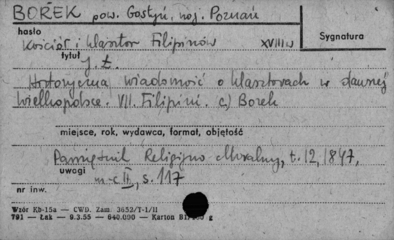 BOREK pow. Gostyń, woj. Poznań
hasło
Kościół i klasztor Filipinów XVIII w
Sygnatura
tytuł
J. Ł.
Historyczna wiadomość o klasztorach w dawnej
Wielkopolsce. VII. Filipini. c) Borek
miejsce, rok, wydawca, format, objętość
Pamiętnik Religijno-Moralny, t. 12, 1847,
uwagi
nr II, s. 117
nr inw.
Wzór Kb-15a — CWD. Zam. 3652/T-1/II
791 — Łsk — 9.3.55 — 640.000 — Karton B1